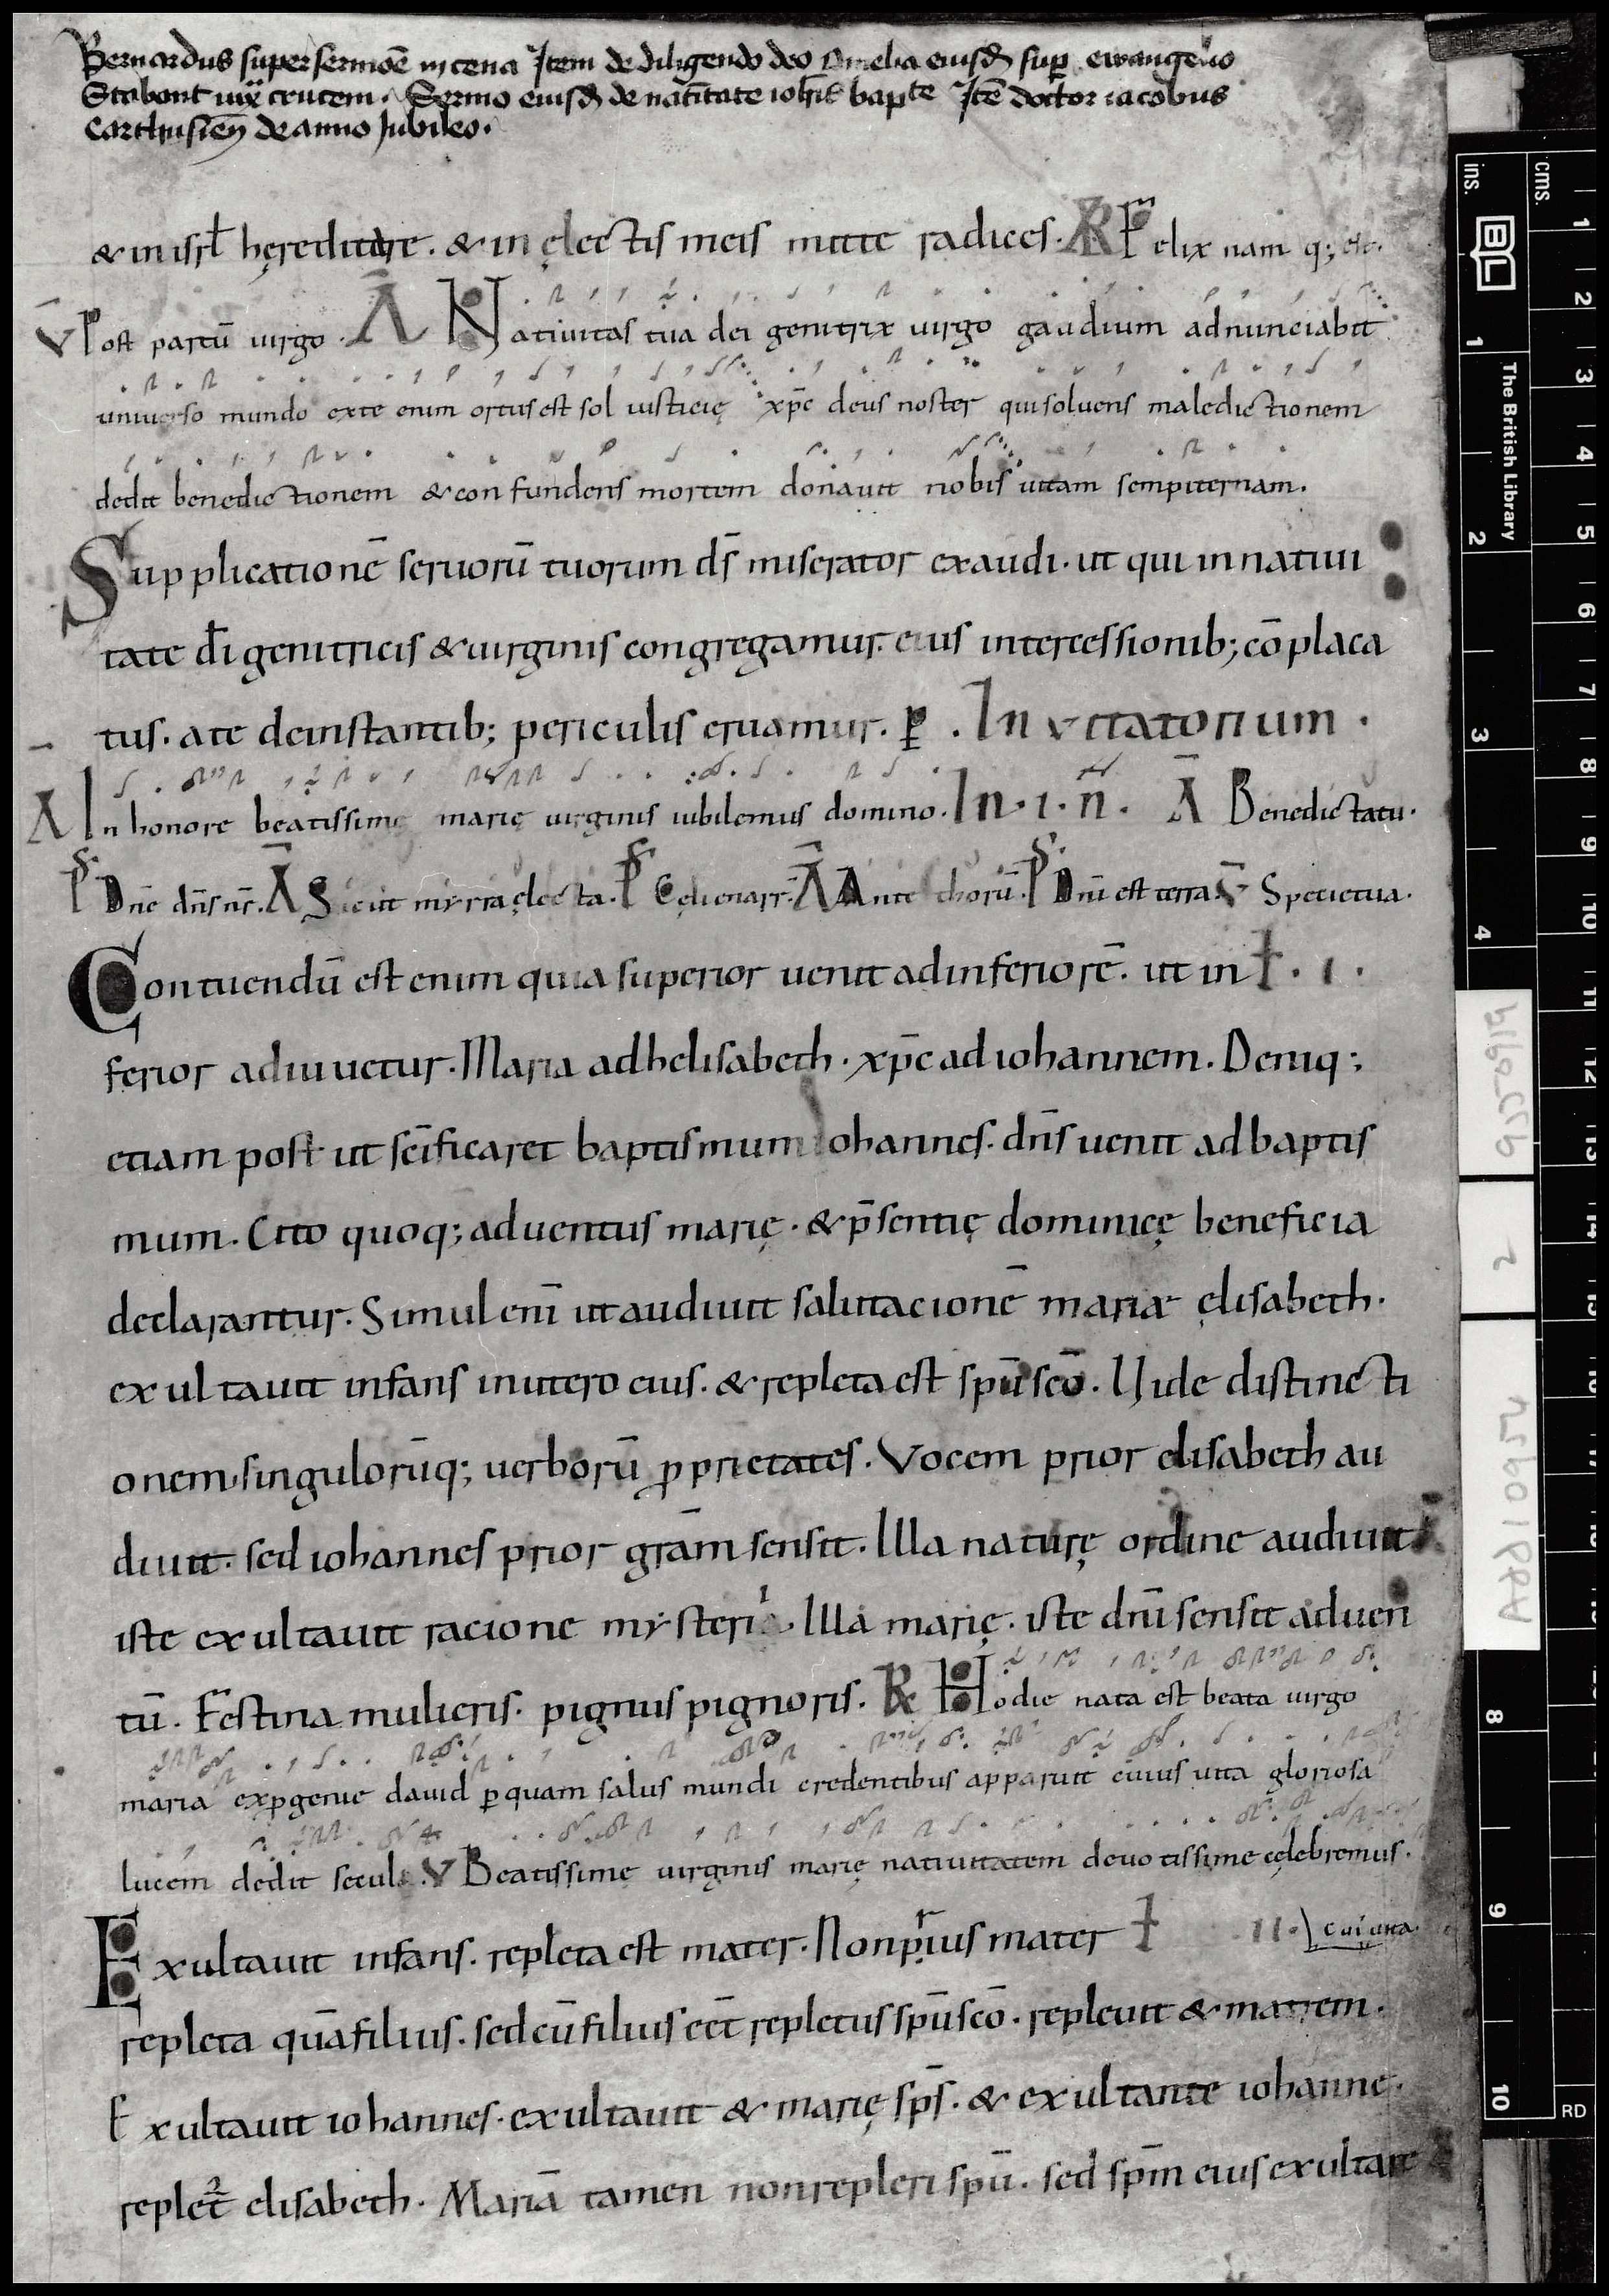 Bernardus super sermoē in cena Itẽm de diligendo deo Omelia eiusđ sup̱ ewangelio
Stabant iux̄ crucem. Sermo eiusđ de natĩtate ioh̃is bapte Itē doctor iacobus
Carthusieñ de anno Jubileo.
& in isrl̄ hęreditare. & in ęlectis meis mitte radices. R̸ Felix nam q; es.
V̄ Post partū uirgo. Ā Natiuitas tua dei genitrix uirgo gaudium adnunciabit
uniuerso mundo exte enim ortus est sol iusticię xp̄c deus noster qui soluens maledictionem
dedit benedictionem & confundens mortem donauit nobis uitam sempiternam.
Supplicationē seruorū tuorum d̄s miserator exaudi. ut qui in natiui
tate d̄i genitricis & uirginis congregamur. eius intercessionib; cōplaca
tus. a te de instantib; periculis eruamur. ꝑ. Invitatorium.
Ā In honore beatissimę marię uirginis iubilemus domino. In. i. n̄. Ā Benedictatu.
Ps Dn̄e dn̄s nr̄. Ā Sicut myrra ęlecta. Ps Cęli enarr̄. Ā Ante thorū. Ps Dn̄i est terra. V̄ Specie tua.
Contuendū est enim quia superior uenit ad inferiorē. ut in ɫ. i.
ferior adiuuetur. Maria ad helisabeth. xp̄c ad iohannem. Deniq;
etiam post ut sc̄ificaret baptismum Iohannes. dn̄s uenit ad baptis
mum. Cito quoq; aduentus marię. & p̄sentię dominicę beneficia
declarantur. Simul eni̅ ut audiuit salutacionē mariæ ęlisabeth.
exultauit infans in utero eius. & repleta est sp̄u sc̄o. Uide distincti
onem singulorūq; uerborū ꝓprietates. Vocem prior elisabeth au
diuit. sed iohannes prior grām sensit. Illa naturę ordine audiuit.
iste exultauit racione mysterii. Illa marię. iste dn̄i sensit aduen
tū. Festina mulieris. pignus pignoris. R̸ Hodie nata est beata uirgo
maria ex ꝓgenie dauid ꝑ quam salus mundi credentibus apparuit cuius uita gloriosa
lucem dedit seculo. V Beatissimę uirginis marię natiuitatem deuotissime cęlebremus.
Exultauit infans. repleta est mater. Non prius mater ɫ II. cui uita
repleta quā filius. sed cū filius eēt repletus sp̄u sc̄o. repleuit & matrem.
Exultauit iohannes. exultauit & marię sp̄s. & exultante iohanne.
replet̄ elisabeth. Mariā tamen non repleri sp̄u. sed sp̄m eius exultare
ins. cms.
BL
The British Library
1 2 3 4 8 9 10
1 2 3 4 5 6 7 8 9 10 11 12 13 14
RD